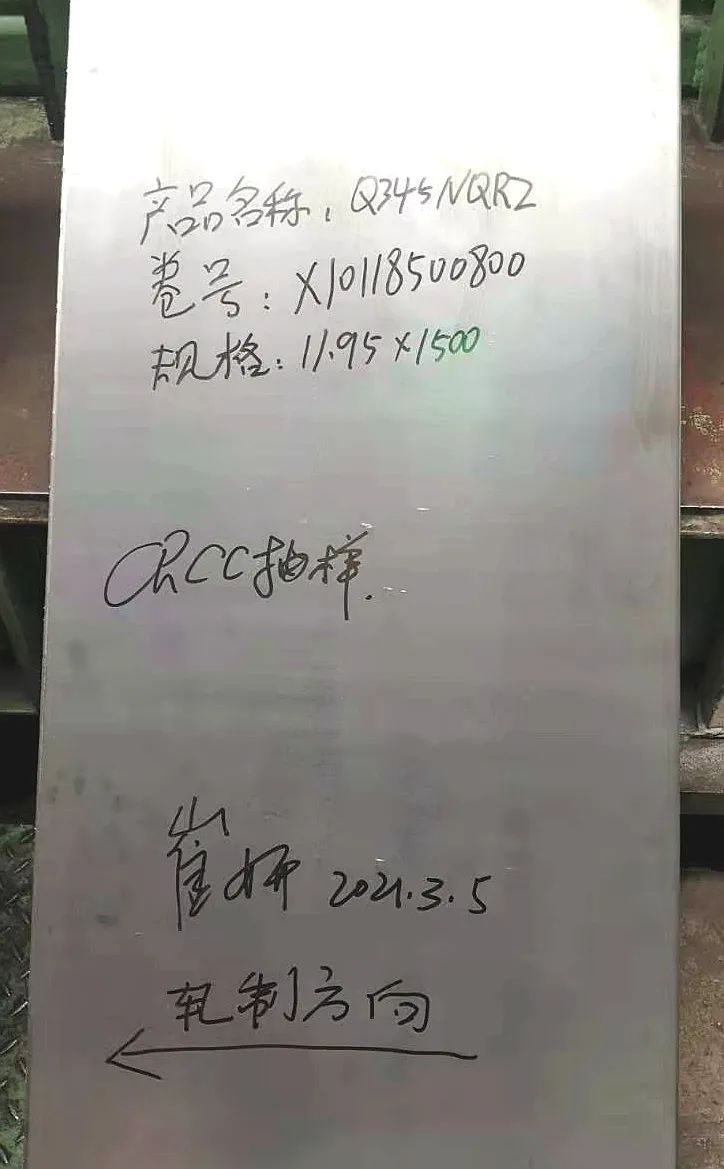 产品名称: Q345NQR2
卷号: X10118500800
规格: 11.95×1500
CRCC抽样.
崔妍 2021.3.5
轧制方向